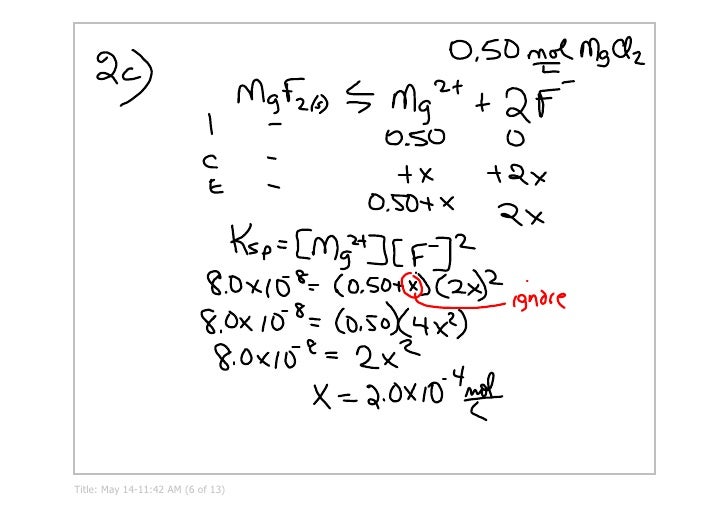 2c)
0.50 mol/L MgCl₂
MgF₂(s) ⇌ Mg²⁺ + 2F⁻
I - 0.50 0
C - +x +2x
E - 0.50+x 2x
Ksp = [Mg²⁺][F⁻]²
8.0x10⁻⁸ = (0.50+x)(2x)² ignore
8.0x10⁻⁸ = (0.50)(4x²)
8.0x10⁻⁸ = 2x²
X = 2.0x10⁻⁴ mol/L
Title: May 14-11:42 AM (6 of 13)